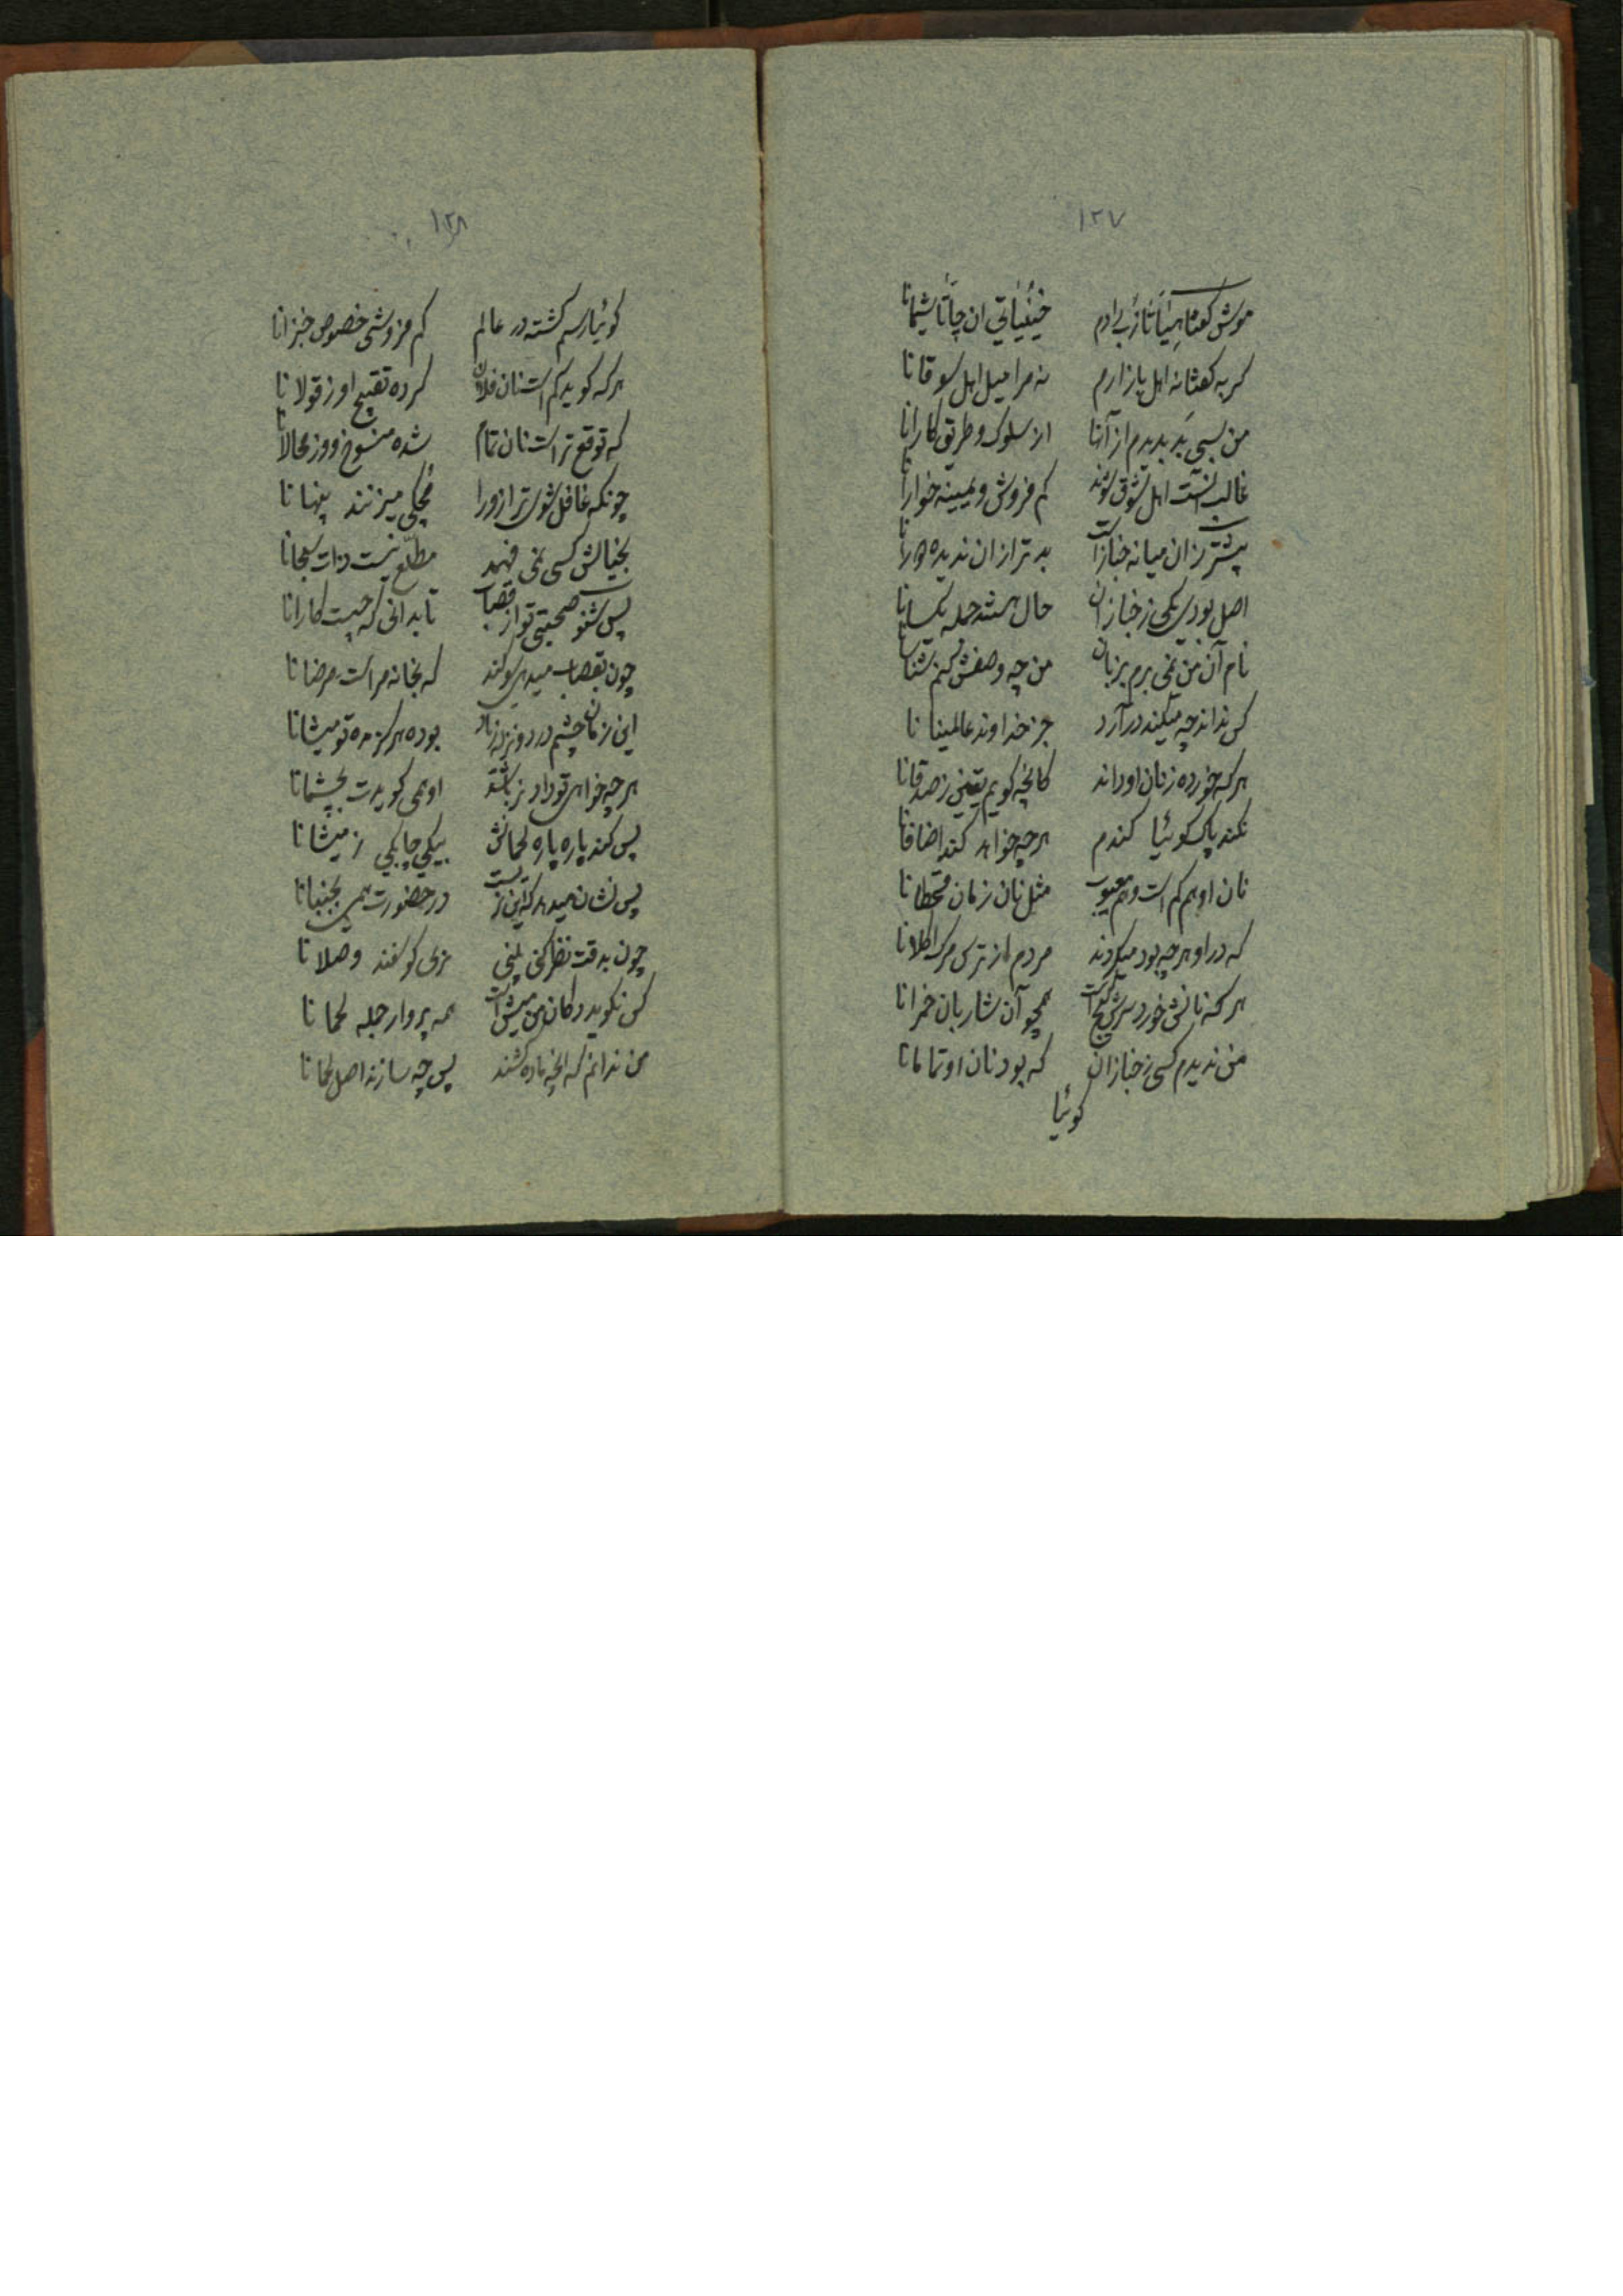 ۱۲۷
موش گفتا
گربه گفتا نه اهل بازارم نه مرا میل اهل سوقانا
من بسی بد بدیدم از آنها از سلوک و طریق کارانا
غالب اهل سوق کم فروش و
بیشتر زان میانه خباز است بدتر از آن ندیده
اصل بودی یکی ز خبازان حال هستند جمله یکسانا
نام آن من نمی برم بزبان من چه وصفش کنم
کس نداند چه میکند در آرد جز خداوند عالمینانا
هر که خورده ز نان او داند کانچه گویم یقین ز صدقانا
نکند پاک گوئیا گندم هر چه خواهد کند اضافانا
نان او هم کم است و هم معیوب مثل نان زمان قحطانا
که در او هر چه بود میکردند مردم از ترس مرک اکلانا
هر که نانش خورد سرش گیج است همچو آن شاربان خمرانا
من ندیدم کسی ز خبازان که بود نان او تمامانا
گوئیا
۱۲۸
گوئیا رسم گشته در عالم کم فروشی خصوص خبزانا
هر که گوید کم است نان فلان کرده تقبیح او ز قولانا
که توقع تراست نان تمام شده منسوخ
چونکه غافل شوی ترازو را مچکی میزنند پنهانا
بخیالش کسی نمی فهمد مطلع نیست ذات سبحانا
پس شنو صحبتی تو از قصاب تا بدانی که چیست کارانا
چون بقصاب میدهی سوگند که بخانه مراست مرضانا
این زمان چشم درد و نزله زیاد بوده هرگز مده تو میشانا
هر چه خواهی تو داد نزد او همی گویدت بچشمانا
پس کند پاره پاره لحمانش بیکی چابکی ز میشانا
پس نشان میدهد که این نر نیست در حضورت همی بجنبانا
چون بدقت نظر کنی بینی نری گوسفند وصلانا
کس نگوید دکان من میش است همه پروار جمله لحمانا
من ندانم که آنچه ماده کشند پس چه سازند اصل لحمانا